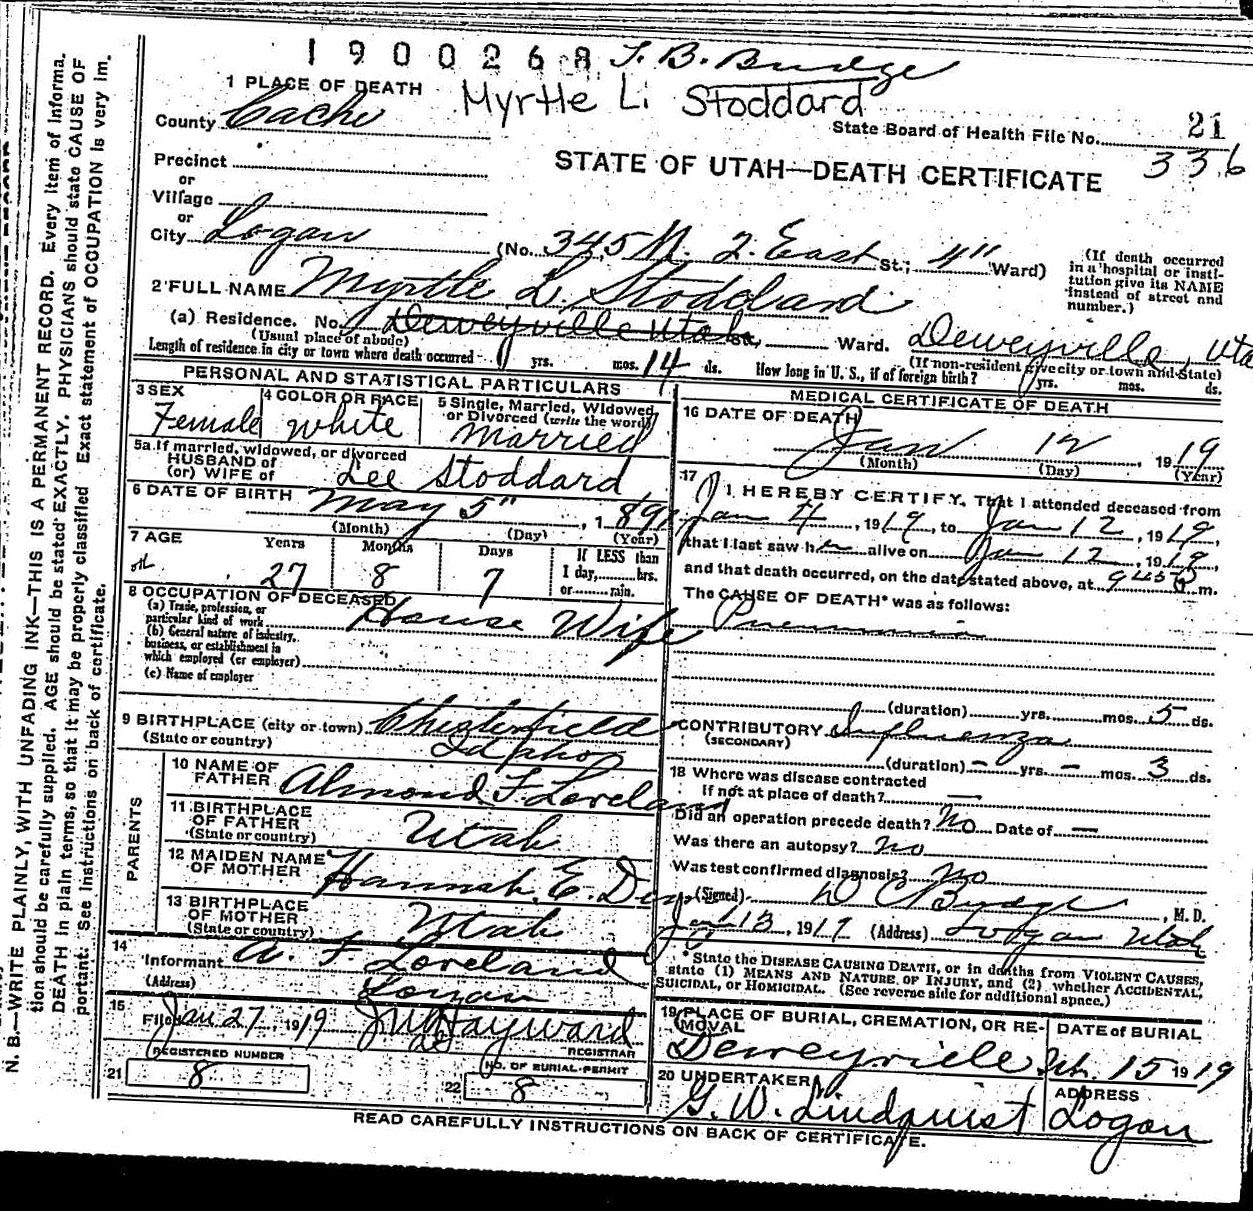 1900268 T. B. Budge
Myrtle L. Stoddard
1 PLACE OF DEATH
County Cache
State Board of Health File No. 21
336
Precinct
or
Village
or
City Logan
STATE OF UTAH—DEATH CERTIFICATE
(No. 345 N. 2. East St.; 4" Ward)
(If death occurred in a hospital or insti-
tution give its NAME
instead of street and
number.)
2 FULL NAME Myrtle L. Stoddard
(a) Residence. No. Deweyville Utah Ward. Deweyville, Utah
(Usual place of abode)
(If non-resident give city or town and State)
Length of residence in city or town where death occurred yrs. mos. 14 ds. How long in U. S., if of foreign birth? yrs. mos. ds.
PERSONAL AND STATISTICAL PARTICULARS
3 SEX
Female
4 COLOR OR RACE
White
5 Single, Married, Widowed,
or Divorced (write the word)
Married
5a If married, widowed, or divorced
HUSBAND of
(or) WIFE of Lee Stoddard
6 DATE OF BIRTH May 5", 1891
(Month) (Day) (Year)
7 AGE Years Months Days If LESS than
1 day, hrs.
27 8 7 or min.
8 OCCUPATION OF DECEASED
(a) Trade, profession, or
particular kind of work House Wife
(b) General nature of industry,
business, or establishment in
which employed (or employer)
(c) Name of employer
9 BIRTHPLACE (city or town) Chesterfield
(State or country) Idaho
PARENTS
10 NAME OF
FATHER Almond F. Loveland
11 BIRTHPLACE
OF FATHER
(State or country) Utah
12 MAIDEN NAME
OF MOTHER Hannah E.
13 BIRTHPLACE
OF MOTHER
(State or country) Utah
14
Informant A. F. Loveland
(Address) Logan
15
Filed Jan 27, 1919 Hayward
REGISTRAR
21 REGISTERED NUMBER 8
22 NO. OF BURIAL PERMIT 8
MEDICAL CERTIFICATE OF DEATH
16 DATE OF DEATH
Jan 12, 1919
(Month) (Day) (Year)
17 I HEREBY CERTIFY, That I attended deceased from
Jan 4, 1919, to Jan 12, 1919,
that I last saw her alive on Jan 12, 1919,
and that death occurred, on the date stated above, at 945 m.
The CAUSE OF DEATH* was as follows:
Pneumonia
(duration) yrs. mos. 5 ds.
CONTRIBUTORY Influenza
(SECONDARY)
(duration) — yrs. — mos. 3 ds.
18 Where was disease contracted
If not at place of death? —
Did an operation precede death? No Date of —
Was there an autopsy? no
Was test confirmed diagnosis? No
(Signed) D C Budge, M. D.
Jan 13, 1919 (Address) Logan Utah
*State the DISEASE CAUSING DEATH, or in deaths from VIOLENT CAUSES,
state (1) MEANS AND NATURE OF INJURY, and (2) whether ACCIDENTAL,
SUICIDAL, OR HOMICIDAL. (See reverse side for additional space.)
19 PLACE OF BURIAL, CREMATION, OR RE-
MOVAL
Deweyville
DATE of BURIAL
15 1919
20 UNDERTAKER
G. W. Lindquist
ADDRESS
Logan
READ CAREFULLY INSTRUCTIONS ON BACK OF CERTIFICATE.
N. B.—WRITE PLAINLY, WITH UNFADING INK—THIS IS A PERMANENT RECORD. Every item of informa-
tion should be carefully supplied. AGE should be stated EXACTLY. PHYSICIANS should state CAUSE OF
DEATH in plain terms, so that it may be properly classified. Exact statement of OCCUPATION is very im-
portant. See instructions on back of certificate.